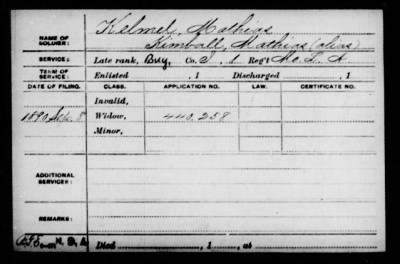 NAME OF SOLDIER: Kelmel, Mathias
Kimball, Mathias (alias)
SERVICE: Late rank, Bug, Co. I, 1 Reg't Mo. L. A.
TERM OF SERVICE: Enlisted , 1 Discharged , 1
DATE OF FILING. CLASS. APPLICATION NO. LAW. CERTIFICATE NO.
Invalid,
1890 Sep. 8 Widow, 440.258
Minor,
ADDITIONAL SERVICES:
REMARKS:
Died , 1 , at